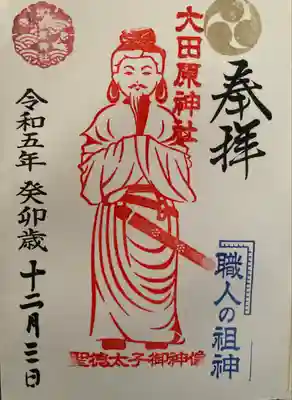 奉拝
職人の祖神
大田原神社
聖徳太子御神像
令和五年 癸卯歳 十二月三日